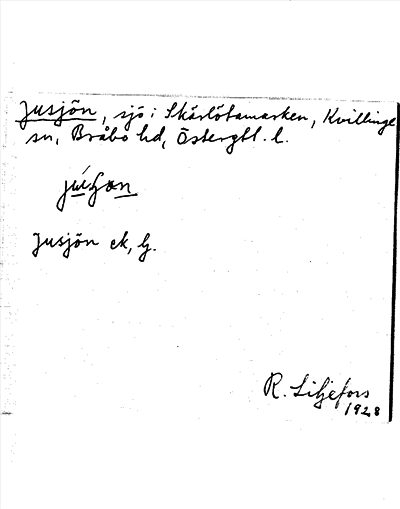 Jusjön, sjö i Skärlötamarken, Kvillinge
sn, Bråbo hd, Östergtl. l.
Jusjön ek, G.
R. Liljefors
1928